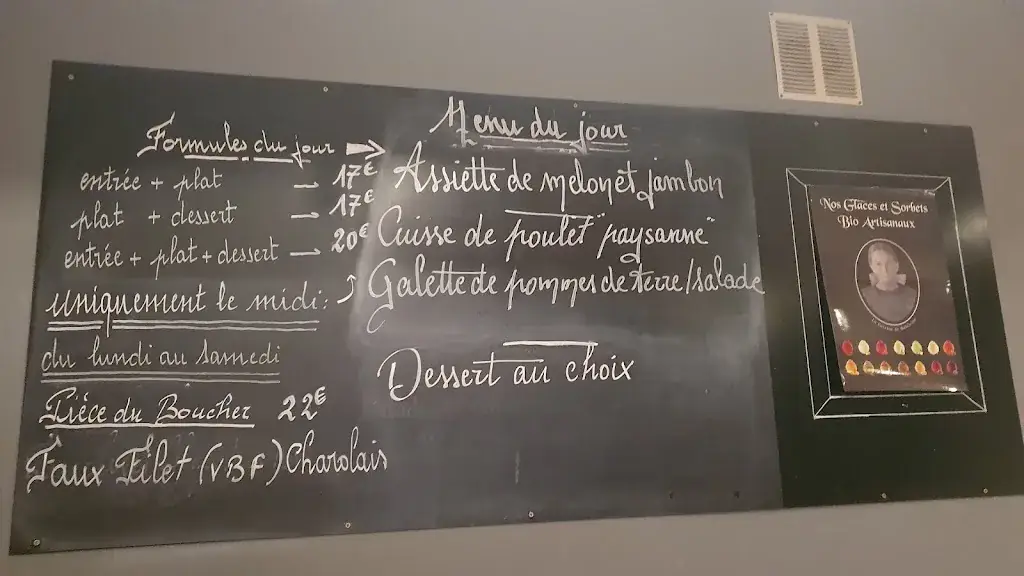 Formules du jour
entrée + plat — 17€
plat + dessert — 17€
entrée + plat + dessert — 20€
uniquement le midi:
du lundi au samedi
Pièce du Boucher 22€
Faux Filet (VBF) Charolais
Menu du jour
Assiette de melon et jambon
Cuisse de poulet "paysanne"
Galette de pommes de terre/salade
Dessert au choix
Nos Glaces et Sorbets
Bio Artisanaux